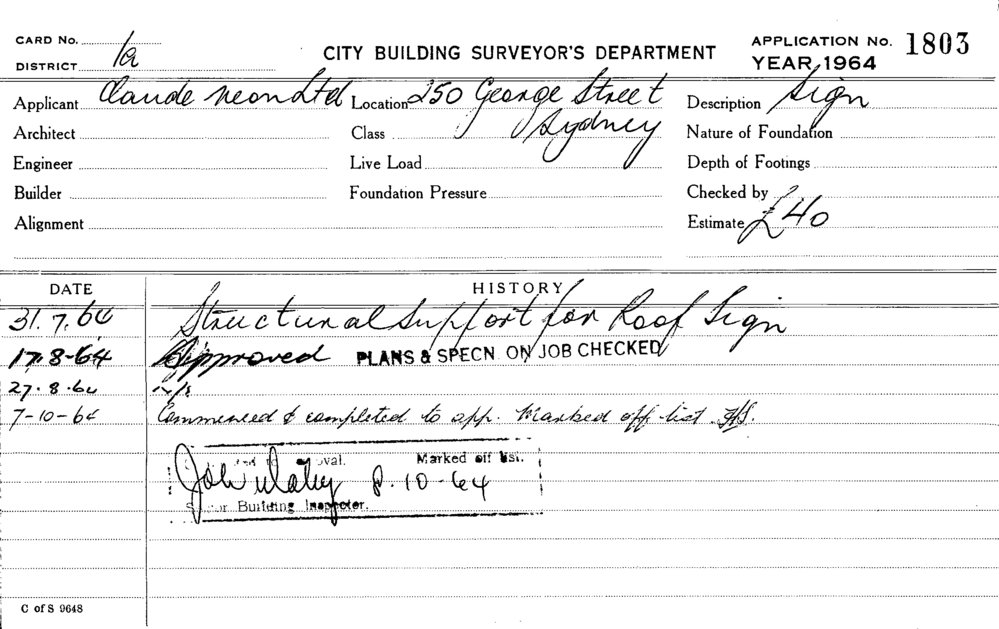 CARD No.
DISTRICT 1a
CITY BUILDING SURVEYOR'S DEPARTMENT
APPLICATION No. 1803
YEAR, 1964
Applicant Claude Neon Ltd Location 250 George Street Description Sign
Architect Class Sydney Nature of Foundation
Engineer Live Load Depth of Footings
Builder Foundation Pressure Checked by
Alignment Estimate £40
DATE HISTORY
31.7.64 Structural Support for Roof Sign
17.8-64 Approved PLANS & SPECN. ON JOB CHECKED
27.8.64 n/s
7-10-64 Commenced & completed to app. Marked off list.
Marked off list.
8.10-64
Building Inspector.
C of S 9648